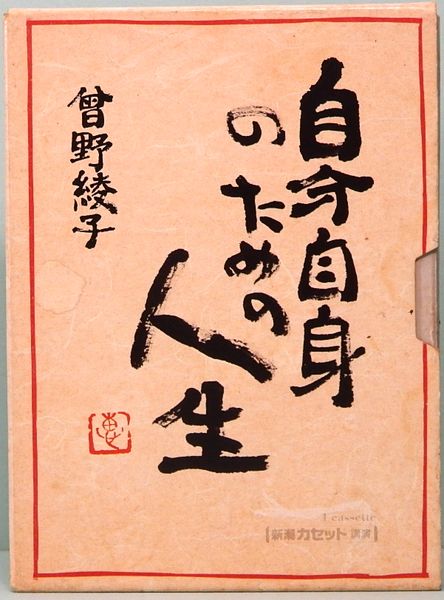 自分自身
のための
人生
曾野綾子
恵
1 cassette
【新潮カセット講演】